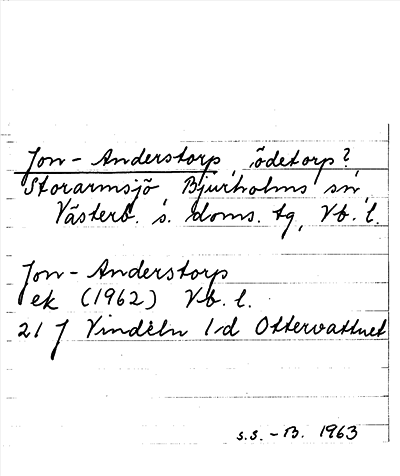 Jon-Anderstorp, ödetorp?
Storarmsjö, Bjurholms sn,
Västerb. s. doms. tg, Vb. l.
Jon-Anderstorp
ek (1962) Vb. l.
21 J Vindeln 1d Ottervattnet
S.S. -B. 1963